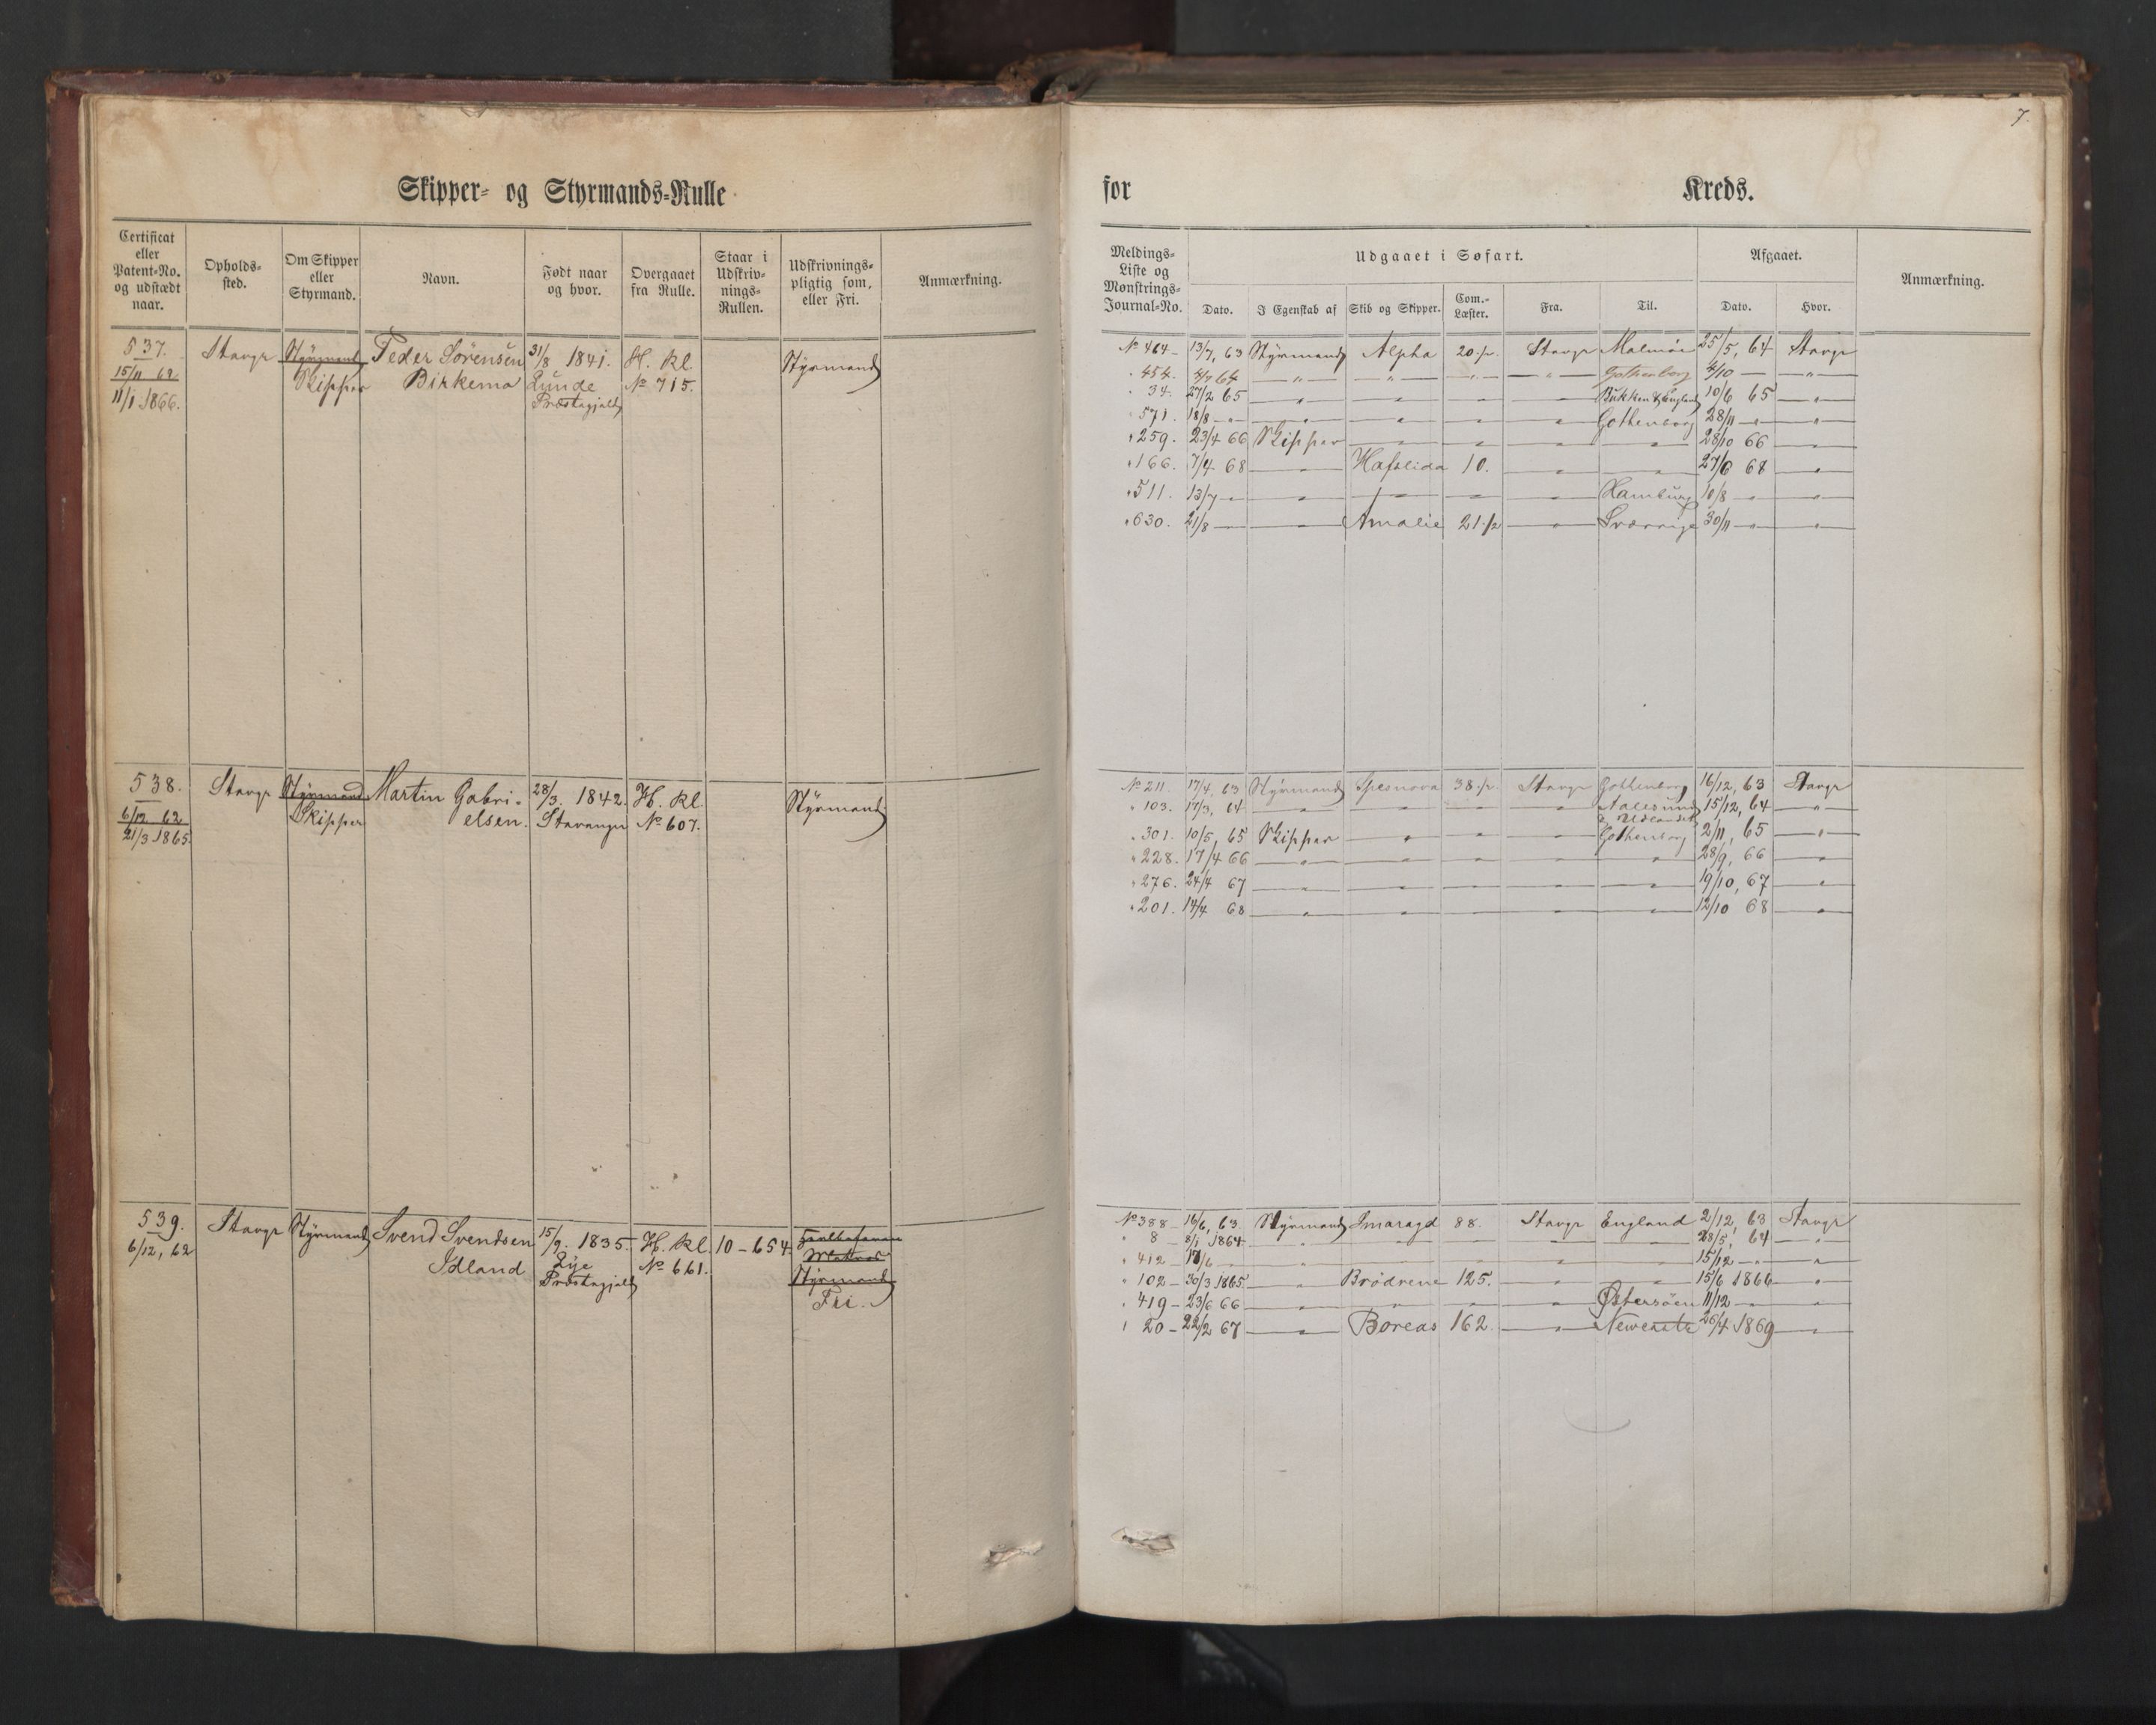 Skipper- og Styrmands-Rulle
Certificat eller Patent-No. og udstædt naar.
Opholds-sted.
Om Skipper eller Styrmand.
Navn.
Født naar og hvor.
Overgaaet fra Rulle.
Staar i Udskriv-nings-Rullen.
Udskrivnings-pligtig som, eller Fri.
Anmærkning.
537. Stavgr Styrmand Peder Sörensen 31/8 1841. H. Kl. Styrmand
15/11 62 Skipper Birkemo Lunde No 715.
11/1 1866. Præstegjeld
538. Stavgr Styrmand Martin Gabri- 28/3. 1842. H. Kl. Styrmand
6/12 62 Skipper elsen. Stavanger No 607.
21/3 1865.
539. Stavgr Styrmand Svend Svendsen 15/9. 1835. H. Kl. 10-654.
6/12, 62 Idland Lye No 661.
Præstegjeld Styrmand
Fri.
7.
for Kreds.
Meldings-Liste og Mønstrings-Journal-No.
Udgaaet i Søfart.
Dato. I Egenskab af Skib og Skipper. Com.-Læster. Fra. Til.
Afgaaet.
Dato. Hvor.
Anmærkning.
No 464 - 13/7, 63 Styrmand Alpha 20 1/2. Stavgr Malmöe 25/5, 64 Stavgr
" 454. 4/7 64 — " — — " — — " — — " — Gothenborg 4/10 — — " —
" 34. 27/2 65 — " — " " — " England 10/6 65 — " —
" 571. 18/8 - " - — " — " " — " Gothenborg 28/11 - " - — " —
" 259. 23/4 66 Skipper — " — " — " " 28/10 66 — " —
" 166. 7/4 68 — " — Hafslida 10. — " — — " — 27/6 68 — " —
" 511. 13/7 - " — " — — " — — " — — " — Hamburg 10/8 - " — " —
" 630. 21/8 — — " — Amalie 21 1/2 — " — Sværrige 30/11 - " — " —
No 211. 17/4, 63 Styrmand Spesnova 38 1/2. Stavgr Gothenborg 16/12, 63 Stavgr
" 103. 17/3, 64 — " — " " — " Aalesund 15/12, 64 — " —
& Udlandet
" 301. 10/5, 65 Skipper — " — " — " Gothenborg 2/11, 65 — " —
" 228. 17/4 66 — " — " " — " " 28/9, 66 — " —
" 276. 24/4 67 — " — " " — " " 19/10, 67 — " —
" 201. 14/4 68 — " — " " — " " 12/10 68 — " —
No 388 - 16/6, 63. Styrmand Smaragd 88. Stavgr England 2/12, 63 Stavgr
" 8 - 8/1 1864. — " — " " — " " 28/5, 64 — " —
" 412 - 17/6 - " " " " " " 15/12 - " "
" 102 - 30/3 1865. — " — Brödrene 125. — " " 15/6 1866 — " —
" 419 - 23/6 66 — " — " " — " Østersöen 11/12 — " "
" 20 - 22/2 67 — " — Boreas 162. — " — 26/4 1869 — " —